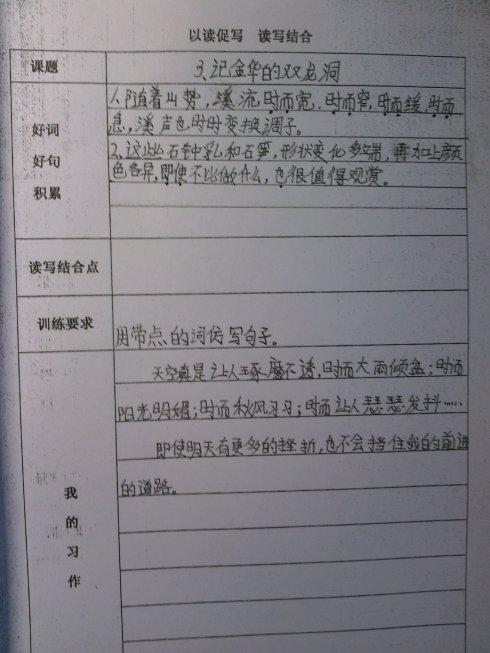 以读促写 读写结合
课题
3、记金华的双龙洞
好词
好句
积累
1、随着山势，溪流时而宽，时而窄，时而缓，时而
急，溪声也时时变换调子。
2、这些石钟乳和石笋，形状变化多端，再加上颜
色各异，即使不比做什么，也很值得观赏。
读写结合点
训练要求
用带点的词仿写句子。
我
的
习
作
天空真是让人琢磨不透，时而大雨倾盆；时而
阳光明媚；时而秋风习习；时而让人瑟瑟发抖……
即使明天有更多的挫折，也不会挡住我的前进
的道路。